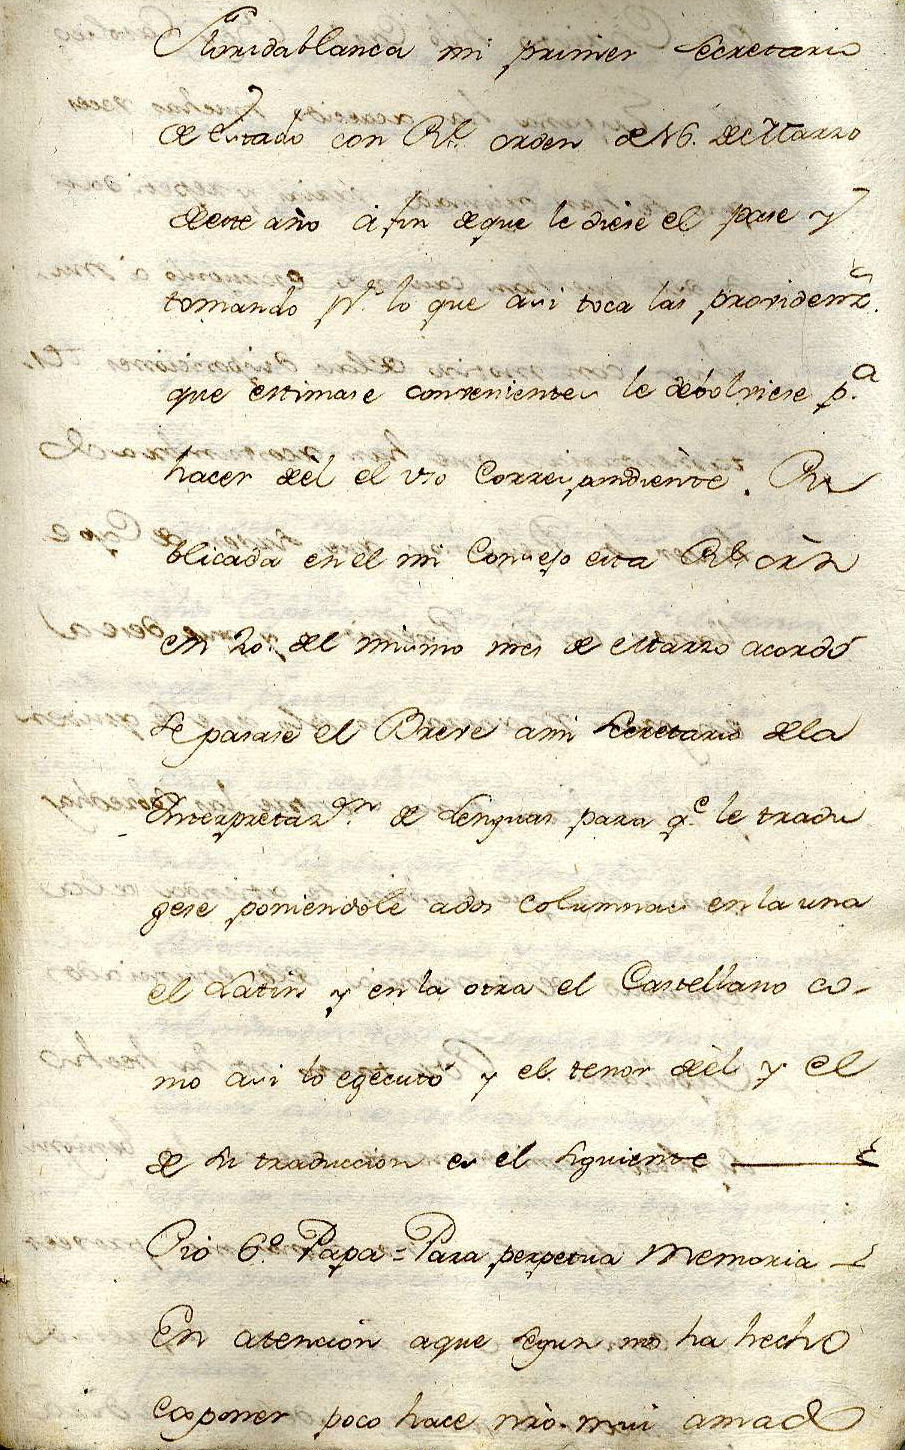 Floridablanca mi primer Secretario
de Estado con Rl. orden de 16. de Marzo
de este año á fin de que le diese el pase y
tomando pr. lo que asi toca las providenzs.
que estimase convenientes le debolviese p.a
hacer dèl el uso correspondiente. Pu
blicada en el mi Consejo esta Rl. orñ
en 20. del mismo mes de Marzo acordó
se pasase el Breve a mi Secretario de la
Interpretazon. de Lenguas para q.e le tradu
gese poniendole a dos columnas en la una
el Latin y en la otra el Castellano co-
mo asi lo egecutó y el tenor dèl y el
de su traduccion es el siguiente
Pio 6.º Papa = Para perpetua memoria
En atencion a que segun nos ha hecho
exponer poco hace nrò. mui amado